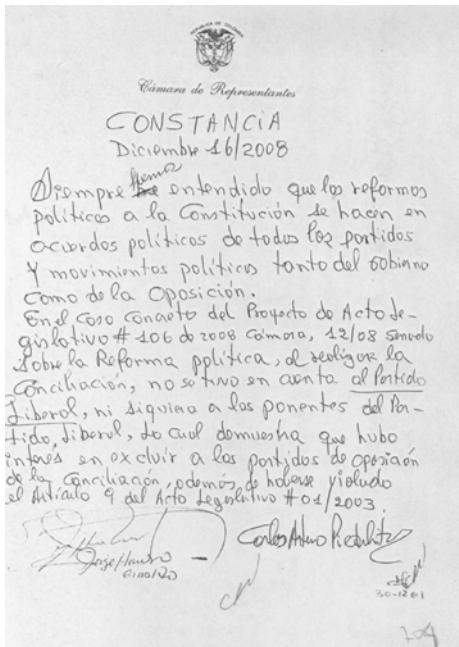 REPUBLICA DE COLOMBIA
Cámara de Representantes
CONSTANCIA
Diciembre 16/2008
Siempre hemos entendido que las reformas
políticas a la Constitución se hacen en
acuerdos políticos de todos los partidos
y movimientos políticos tanto del Gobierno
como de la Oposición.
En el caso concreto del Proyecto de Acto le-
gislativo # 106 de 2008 Cámara, 12/08 Senado
sobre la Reforma política, al realizar la
Conciliación, no se tuvo en cuenta al Partido
Liberal, ni siquiera a los ponentes del Par-
tido, liberal, lo cual demuestra que hubo
interes en excluir a los partidos de oposición
de la Conciliación, además, de haberse violado
el Artículo 9 del Acto Legislativo #01/2003.
Carlos Arturo Piedrahita
Jorge Homero
Giraldo